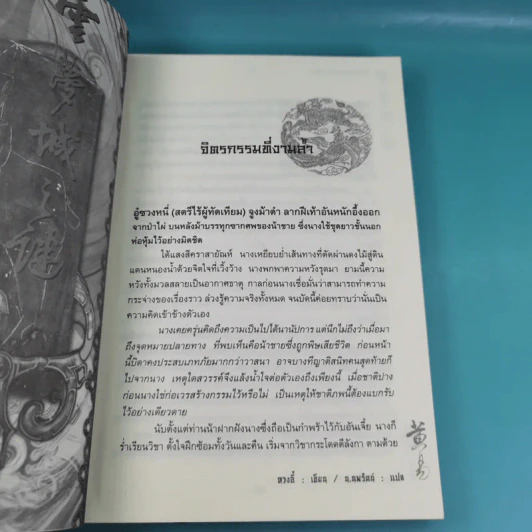 จิตรกรรมที่งามล้ำ
อู๋ซวงหนี่ (สตรีไร้ผู้ทัดเทียม) จูงม้าดำ ลากฝีเท้าอันหนักอึ้งออก
จากป่าไผ่ บนหลังม้าบรรทุกซากศพของน้าชาย ซึ่งนางใช้ชุดยาวชั้นนอก
ห่อหุ้มไว้อย่างมิดชิด
ใต้แสงสีคราสายัณห์ นางเหยียบย่ำเส้นทางที่ตัดผ่านดงไม้สู่ดิน
แดนหนองน้ำด้วยจิตใจที่เวิ้งว้าง นางพกพาความหวังรุดมา ยามนี้ความ
หวังทั้งมวลสลายเป็นอากาศธาตุ กาลก่อนนางเชื่อมั่นว่าสามารถทำความ
กระจ่างของเรื่องราว ล่วงรู้ความจริงทั้งหมด จนบัดนี้ค่อยทราบว่านั่นเป็น
ความคิดเข้าข้างตัวเอง
นางเคยครุ่นคิดถึงความเป็นไปได้นานัปการ แต่นึกไม่ถึงว่าเมื่อมา
ถึงจุดหมายปลายทาง ที่พบเห็นคือน้าชายซึ่งถูกพิษเสียชีวิต ก่อนหน้า
นี้บิดาคงประสบเภทภัยมากกว่าวาสนา อาจบางทีญาติสนิทคนสุดท้ายก็
ไปจากนาง เหตุใดสวรรค์จึงแล้งน้ำใจต่อตัวเองถึงเพียงนี้ เมื่อชาติปาง
ก่อนนางใช่ก่อเวรสร้างกรรมไว้หรือไม่ เป็นเหตุให้ชาติภพนี้ต้องแบกรับ
ไว้อย่างเดียวดาย
นับตั้งแต่ท่านน้าฝากฝังนางซึ่งถือเป็นกำพร้าไว้กับอันเจี้ย นางก็
ร่ำเรียนวิชา ตั้งใจฝึกซ้อมทั้งวันและคืน เริ่มจากวิชากระโดดตีลังกา ตามด้วย
หวงอี้ : เขียน / น.นพรัตน์ : แปล
黃易